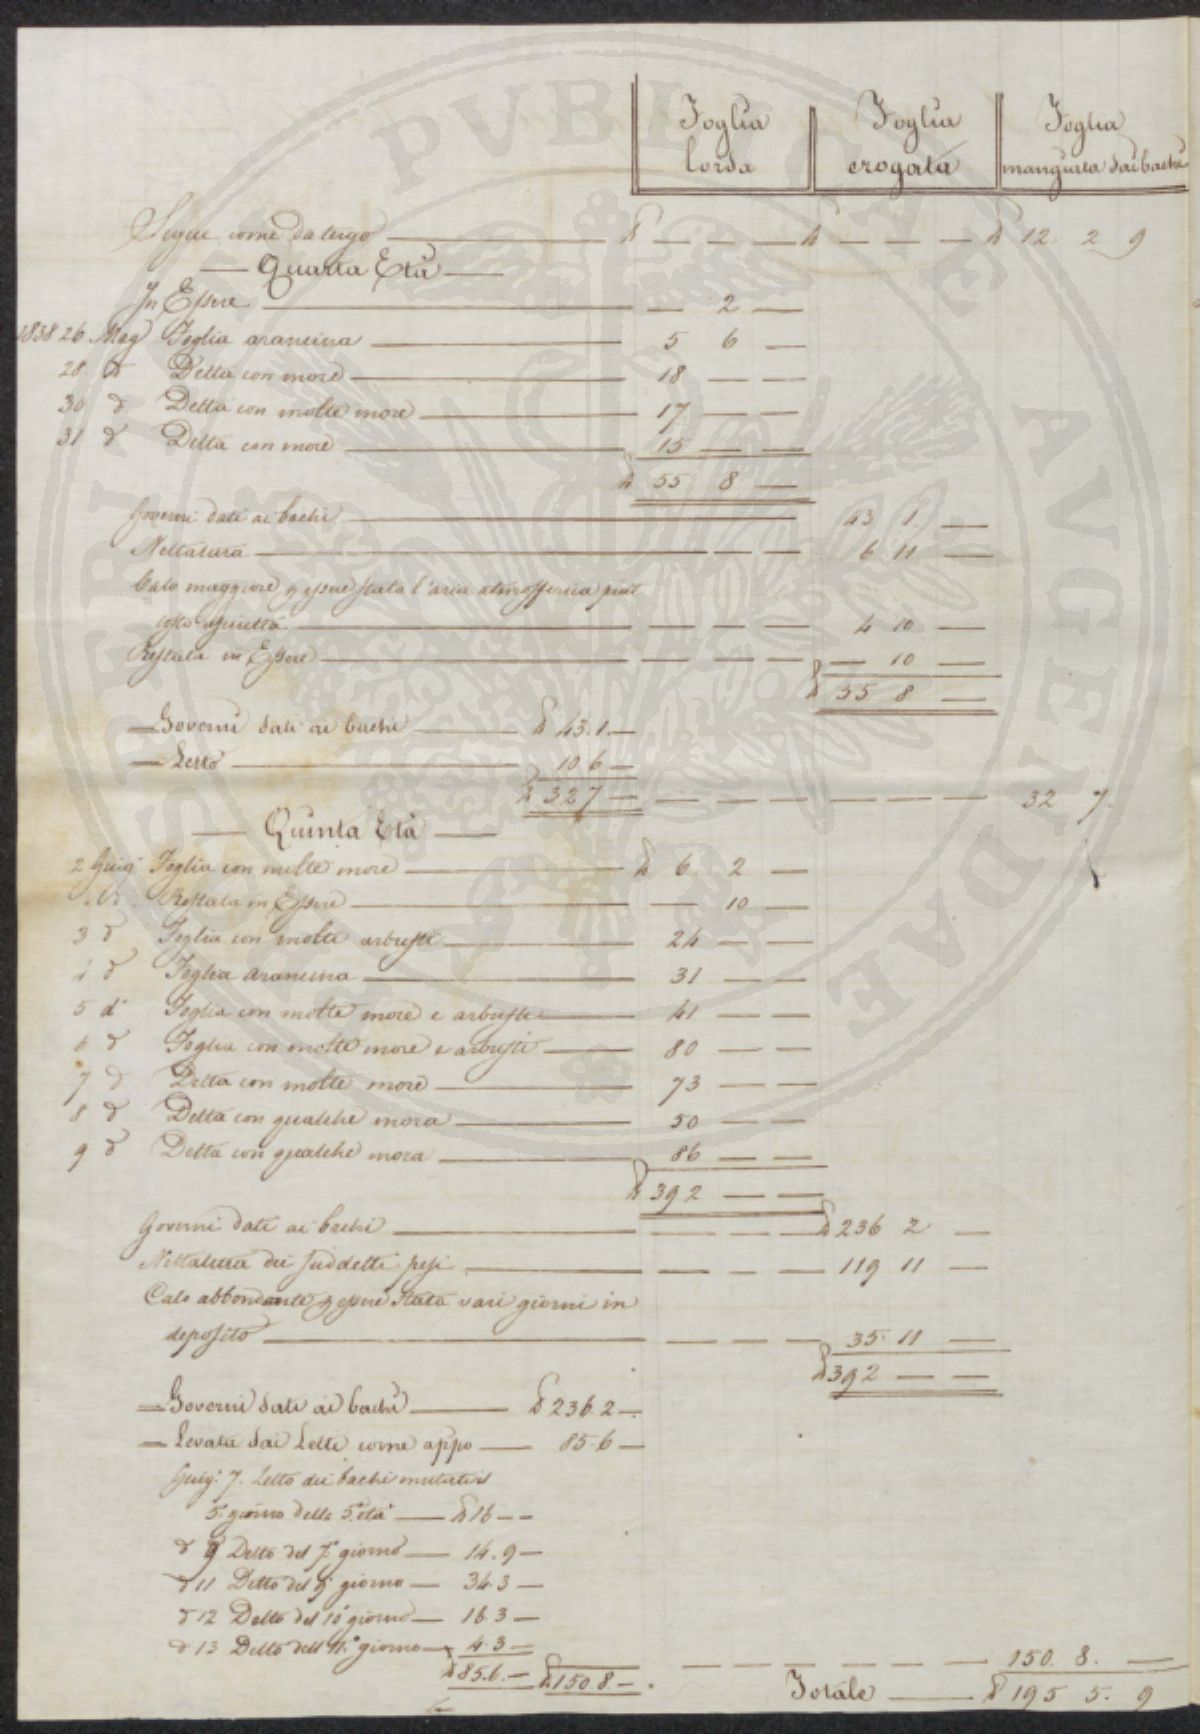 PVBLICAE AVGENDAE
Foglia Foglia Foglia
lorda erogata mangiata dai bachi
Segue come da tergo ₶ — — — ₶ — — — ₶ 12. 2 9
— Quarta Età —
In Essere — 2 —
1838 26 Mag Foglia arancina 5 6 —
28 d Detta con more 18 — —
30 d Detta con molte more 17 — —
31 d Detta con more 15 — —
₶ 55 8 —
Governi dati ai bachi 43 1 —
Nettatura 6 11 —
Calo maggiore p essere stata l'aria atmosferica piut
tosto asciutta 4 10 —
Restata in Essere — 10 —
₶ 55 8 —
— Governi dati ai bachi ₶ 43.1 —
— Letto 10 6 —
₶ 32 7 — 32 7.
— Quinta Età —
2 Giug Foglia con molte more ₶ 6. 2 —
Restata in Essere — 10 —
3 d Foglia con molte arbuste 24 — —
4 d Foglia arancina 31 — —
5 d Foglia con molte more e arbuste 41 — —
6 d Foglia con molte more e arbuste 80 — —
7 d Detta con molte more 73 — —
8 d Detta con qualche mora 50 — —
9 d Detta con qualche mora 86 — —
₶ 392 — —
Governi dati ai bachi ₶ 236 2 —
Nettatura dei suddetti pesi 119 11 —
Calo abbondante p essere stata vari giorni in
deposito 35 11 —
₶ 392 — —
— Governi dati ai bachi ₶ 236.2 —
— Levata dai Letti come appo 85.6 —
Giug: 7. Letto dei bachi mutati il
5.º giorno della 5.ª età ₶ 16 — —
d 9 Detto del 7.º giorno 14.9 —
d 11 Detto del 9.º giorno 34.3 —
d 12 Detto del 10.º giorno 16.3 —
d 13 Detto dell' 11.º giorno 4.3 —
₶ 85.6. — ₶ 150 8 — 150. 8. —
Totale ₶ 195 5. 9